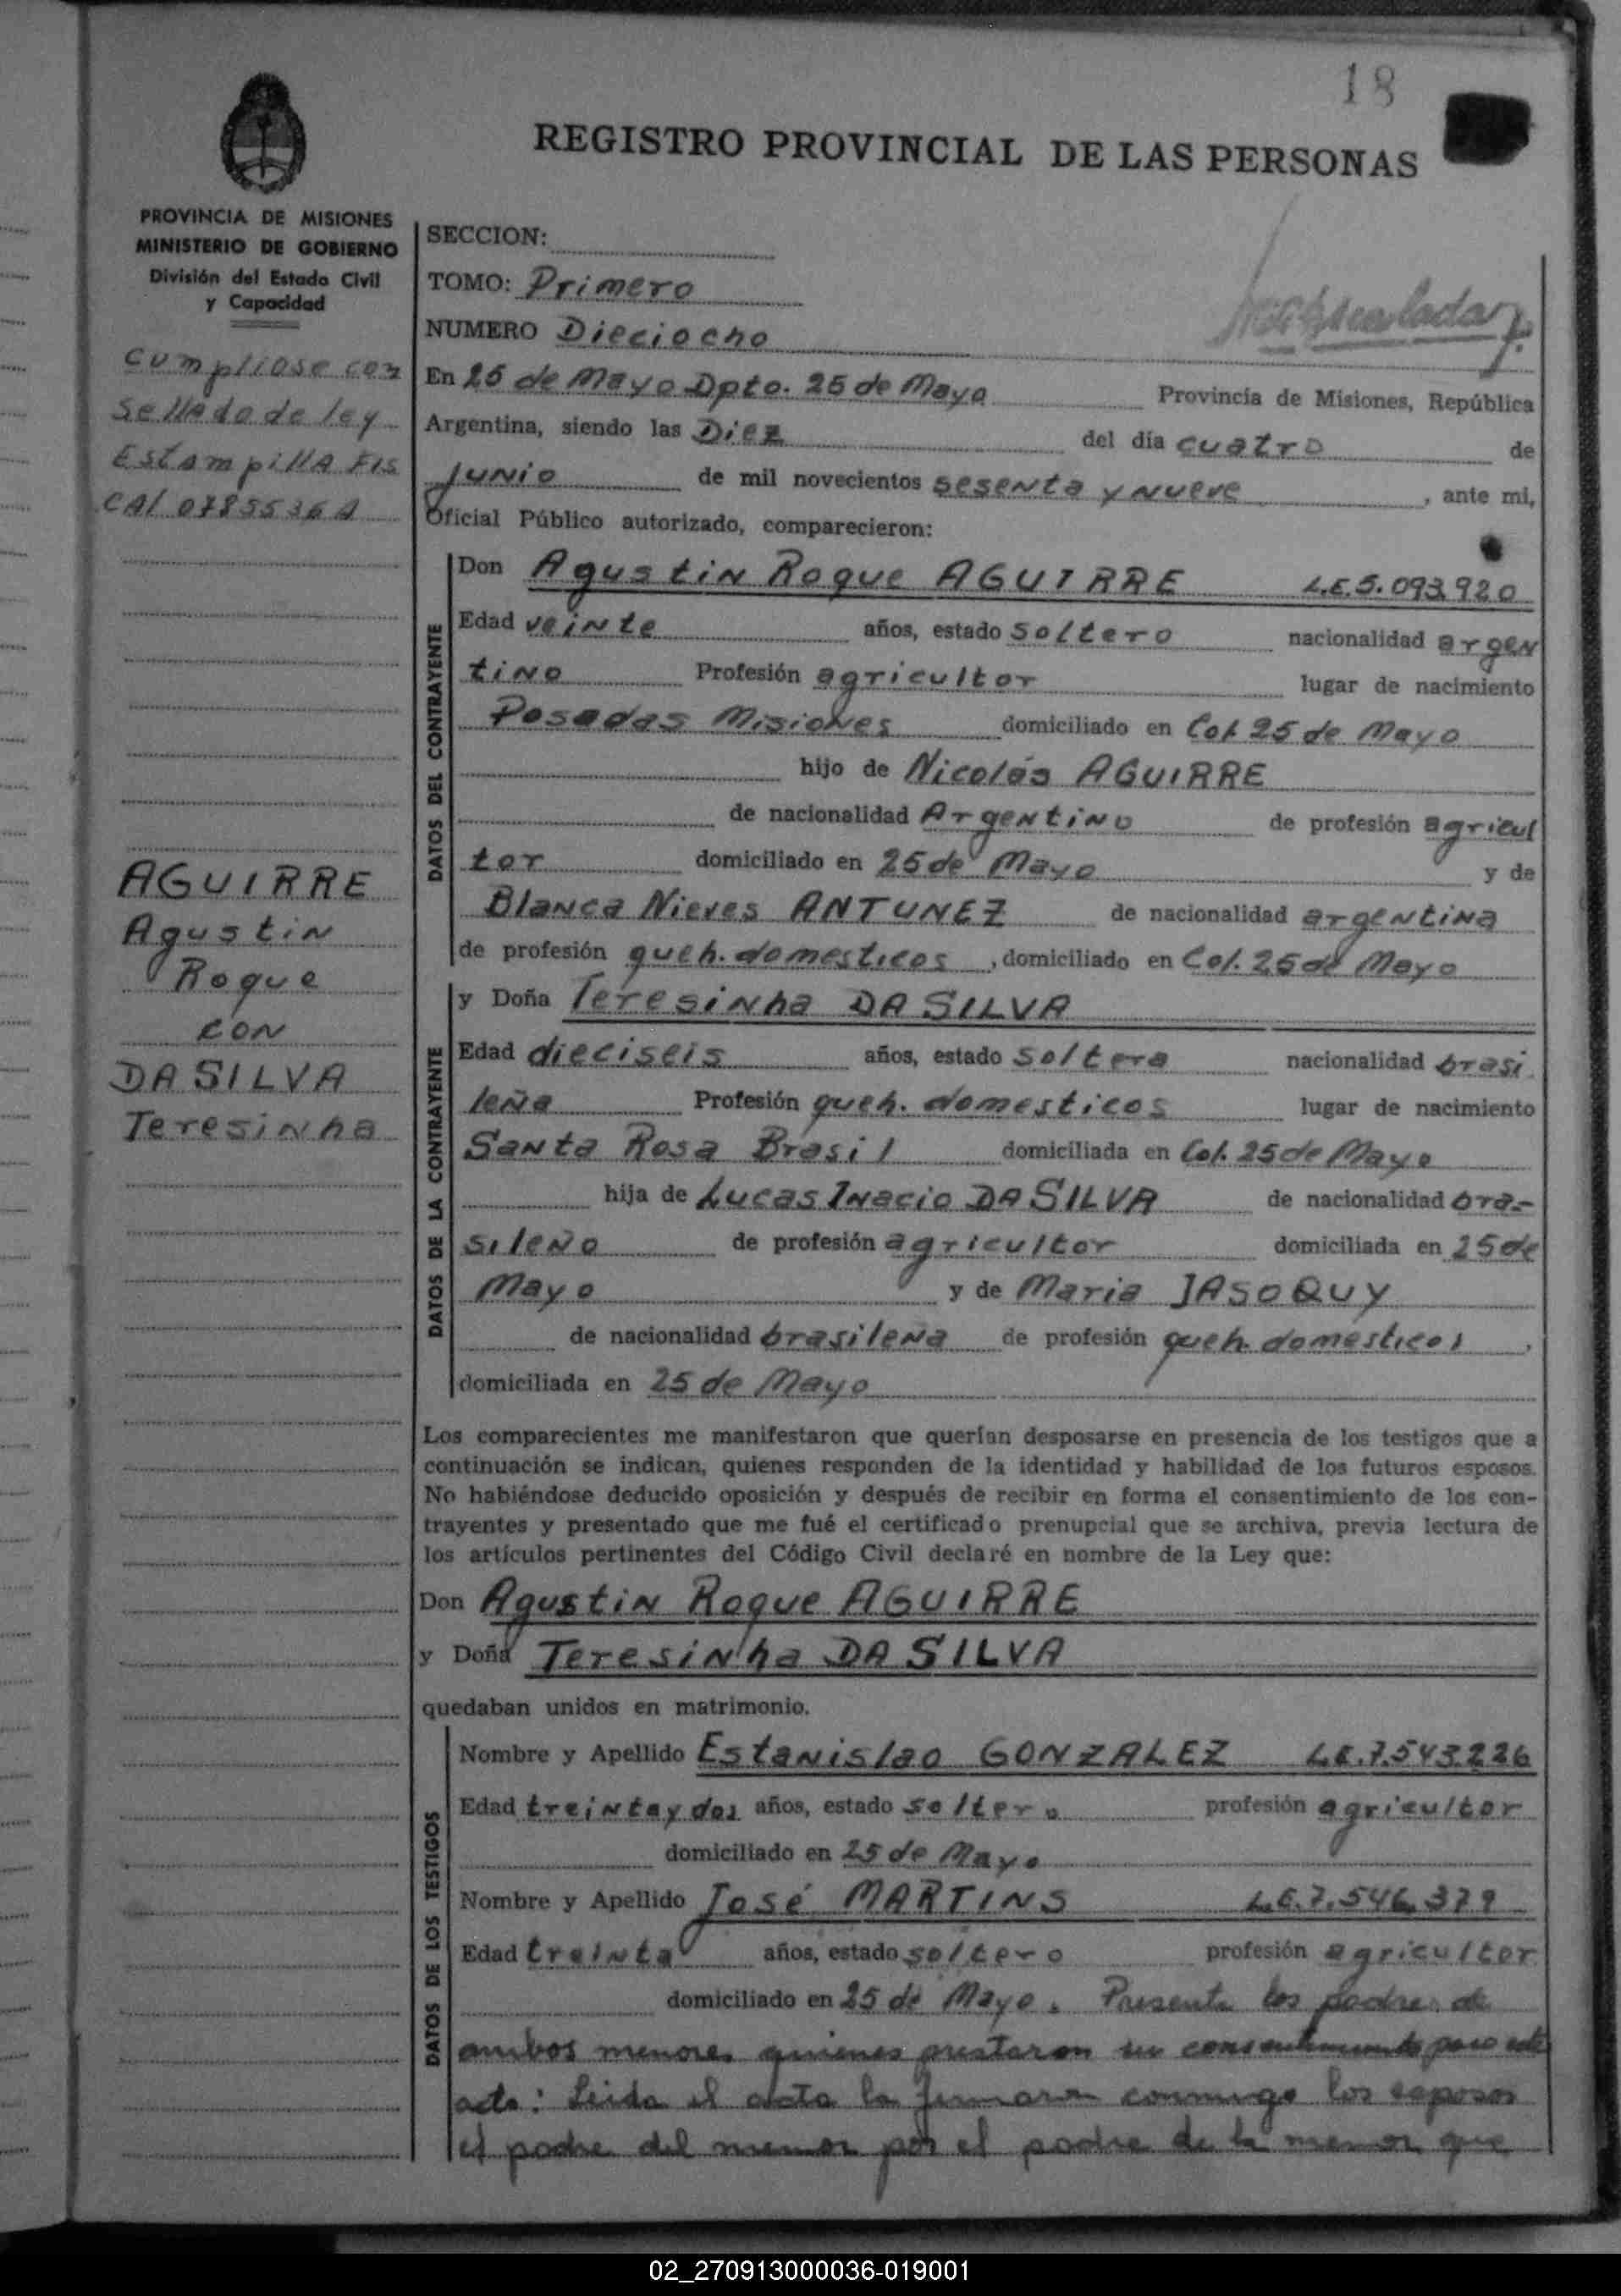 18
REGISTRO PROVINCIAL DE LAS PERSONAS
PROVINCIA DE MISIONES
MINISTERIO DE GOBIERNO
División del Estado Civil
y Capacidad
cumpliose con
sellado de ley
Estampilla FIS
CAl
AGUIRRE
Agustin
Roque
CON
DA SILVA
Teresinha
SECCION:
TOMO: Primero
NUMERO Dieciocho
En 25 de Mayo Dpto. 25 de Mayo Provincia de Misiones, República
Argentina, siendo las Diez del día cuatro de
Junio de mil novecientos sesenta y nueve, ante mi,
Oficial Público autorizado, comparecieron:
DATOS DEL CONTRAYENTE
Don Agustin Roque AGUIRRE L.E.5.093.920
Edad veinte años, estado soltero nacionalidad argen
tino Profesión agricultor lugar de nacimiento
Posadas Misiones domiciliado en Col. 25 de Mayo
hijo de Nicolás AGUIRRE
de nacionalidad Argentino de profesión agricul
tor domiciliado en 25 de Mayo y de
Blanca Nieves ANTUNEZ de nacionalidad argentina
de profesión queh. domesticos, domiciliado en Col. 25 de Mayo
DATOS DE LA CONTRAYENTE
y Doña Teresinha DA SILVA
Edad dieciseis años, estado soltera nacionalidad brasi
leña Profesión queh. domesticos lugar de nacimiento
Santa Rosa Brasil domiciliada en Col. 25 de Mayo
hija de Lucas Inacio DA SILVA de nacionalidad bra-
sileño de profesión agricultor domiciliada en 25 de
Mayo y de Maria JASOQUY
de nacionalidad brasileña de profesión queh. domesticos,
domiciliada en 25 de Mayo
Los comparecientes me manifestaron que querían desposarse en presencia de los testigos que a
continuación se indican, quienes responden de la identidad y habilidad de los futuros esposos.
No habiéndose deducido oposición y después de recibir en forma el consentimiento de los con-
trayentes y presentado que me fué el certificado prenupcial que se archiva, previa lectura de
los artículos pertinentes del Código Civil declaré en nombre de la Ley que:
Don Agustin Roque AGUIRRE
y Doña Teresinha DA SILVA
quedaban unidos en matrimonio.
DATOS DE LOS TESTIGOS
Nombre y Apellido Estanislao GONZALEZ L.E.7.543.226
Edad treinta y dos años, estado soltero profesión agricultor
domiciliado en 25 de Mayo
Nombre y Apellido José MARTINS L.E.7.546.379
Edad treinta años, estado soltero profesión agricultor
domiciliado en 25 de Mayo. Presente los padres de
ambos menores quienes prestaron su consentimiento para este
acto: Leida el acta la firmaron conmigo los esposos
el padre del menor por el padre de la menor que
02_270913000036-019001